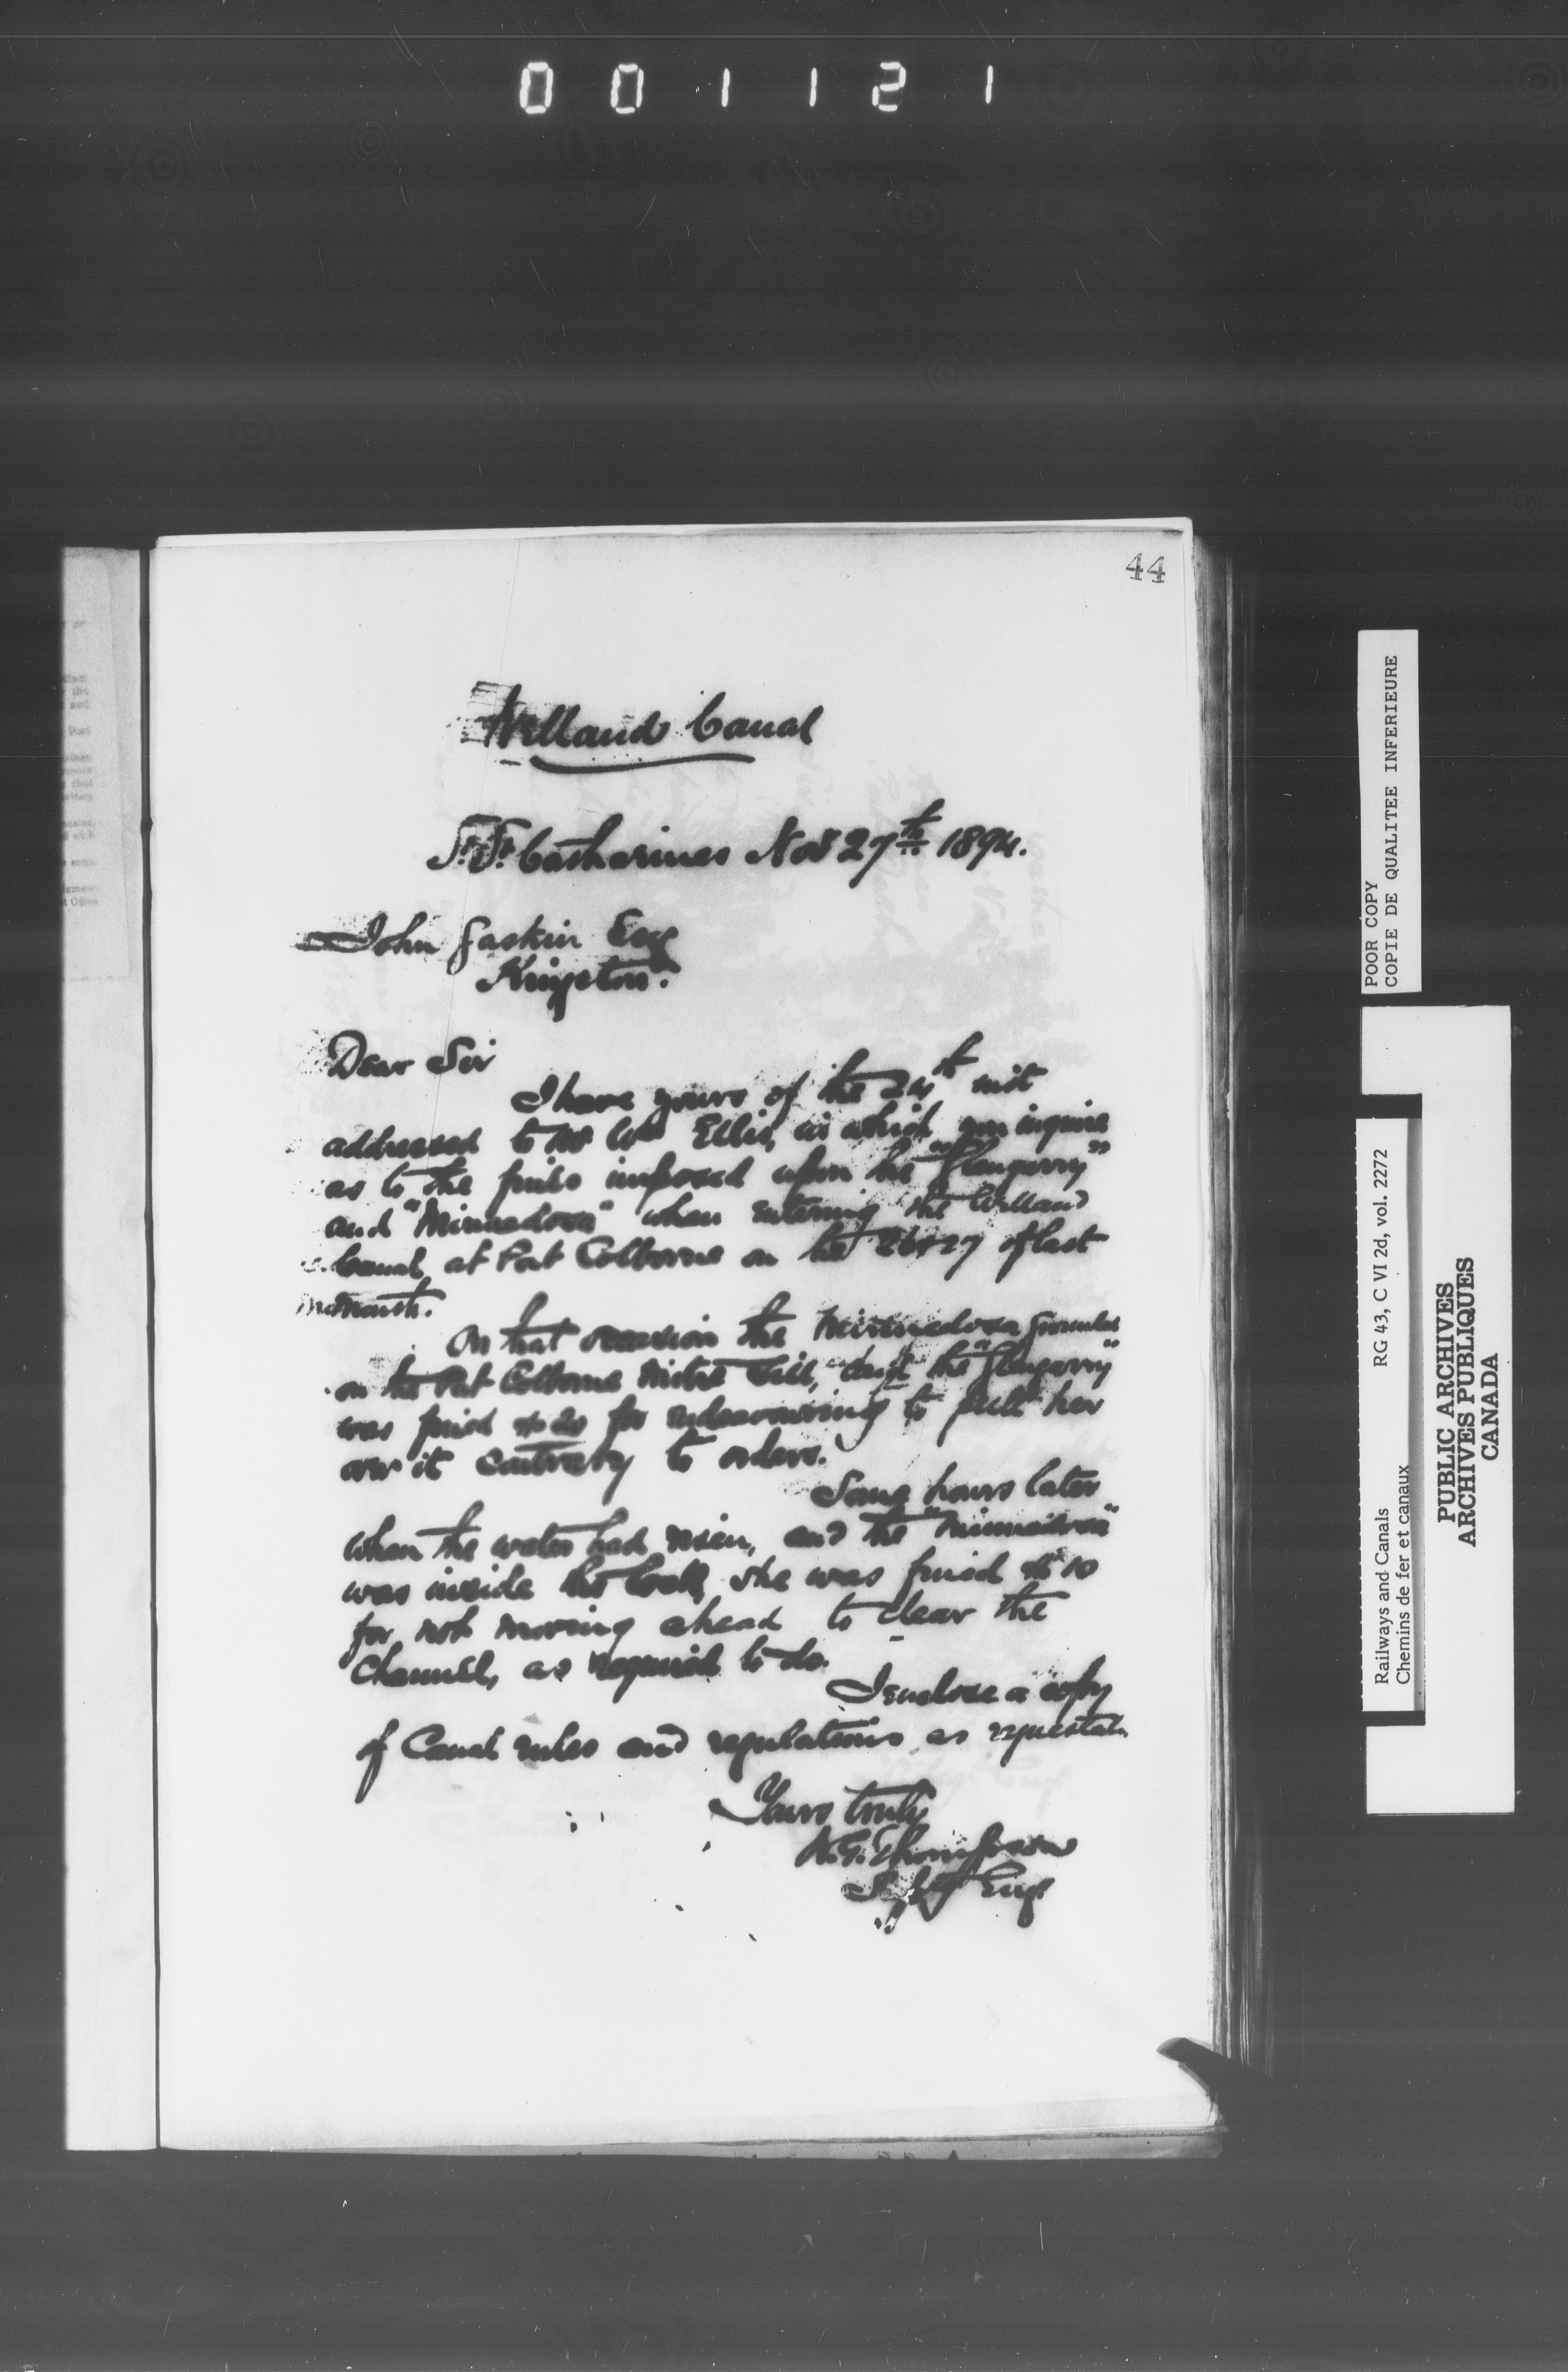 001121
44
Welland Canal
St. Catharines Nov 27th 1894.
John Gaskin Esq
Kingston.
Dear Sir
I have yours of the 24th inst
addressed to Mr Wm Ellis, in which you inquire
as to the fines imposed upon the "Glengarry"
and "Minnedosa" when entering the Welland
Canal at Port Colborne on the 26 & 27 of last
month.
On that occasion the Minnedosa grounded
on the Port Colborne Mitre Sill, and the "Glengarry"
was fined $20 for endeavouring to pull her
over it contrary to orders.
Some hours later
when the water had risen, and the "Minnedosa"
was inside the lock, she was fined $10
for not moving ahead to clear the
Channel, as required to do.
I enclose a copy
of Canal rules and regulations as requested.
Yours truly
W.G. Thompson
Supt Engr
POOR COPY
COPIE DE QUALITEE INFERIEURE
RG 43, C VI 2d, vol. 2272
Railways and Canals
Chemins de fer et canaux
PUBLIC ARCHIVES
ARCHIVES PUBLIQUES
CANADA